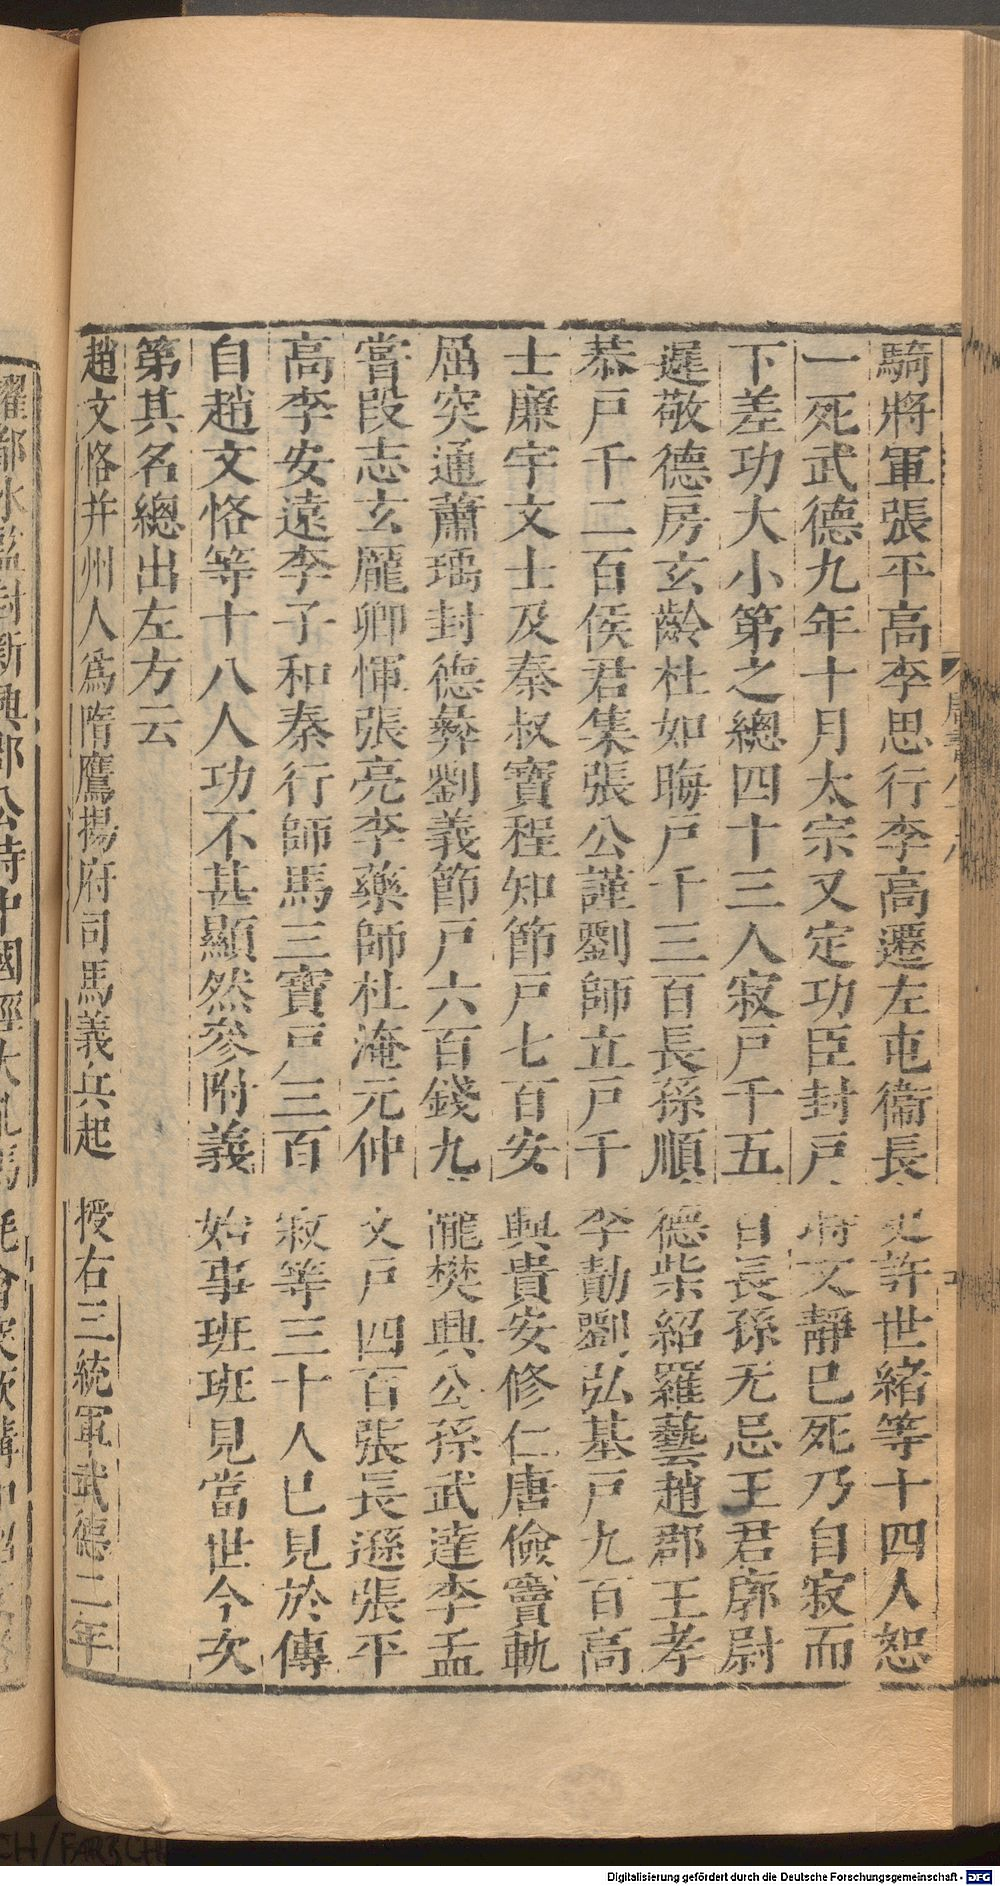 騎將軍張平高李思行李高遷左屯衞長史許世緒等十四人恕
一死武德九年十月太宗又定功臣封戶時文靜已死乃自寂而
下差功大小第之總四十三人寂戶千五百長孫无忌王君廓尉
遲敬德房玄齡杜如晦戶千三百長孫順德柴紹羅藝趙郡王孝
恭戶千二百侯君集張公謹劉師立戶千李勣劉弘基戶九百高
士廉宇文士及秦叔寶程知節戶七百安興貴安修仁唐儉竇軌
屈突通蕭瑀封德彝劉義節戶六百錢九隴樊興公孫武達李孟
嘗段志玄龐卿惲張亮李藥師杜淹元仲文戶四百張長遜張平
高李安遠李子和秦行師馬三寶戶三百寂等三十人已見於傳
自趙文恪等十八人功不甚顯然參附義始事班班見當世今次
第其名總出左方云
趙文恪并州人爲隋鷹揚府司馬義兵起 授右三統軍武德二年
唐書八十八
都水監封新興郡公時中國經大亂馬耗會突厥講和詔
Digitalisierung gefördert durch die Deutsche Forschungsgemeinschaft - DFG